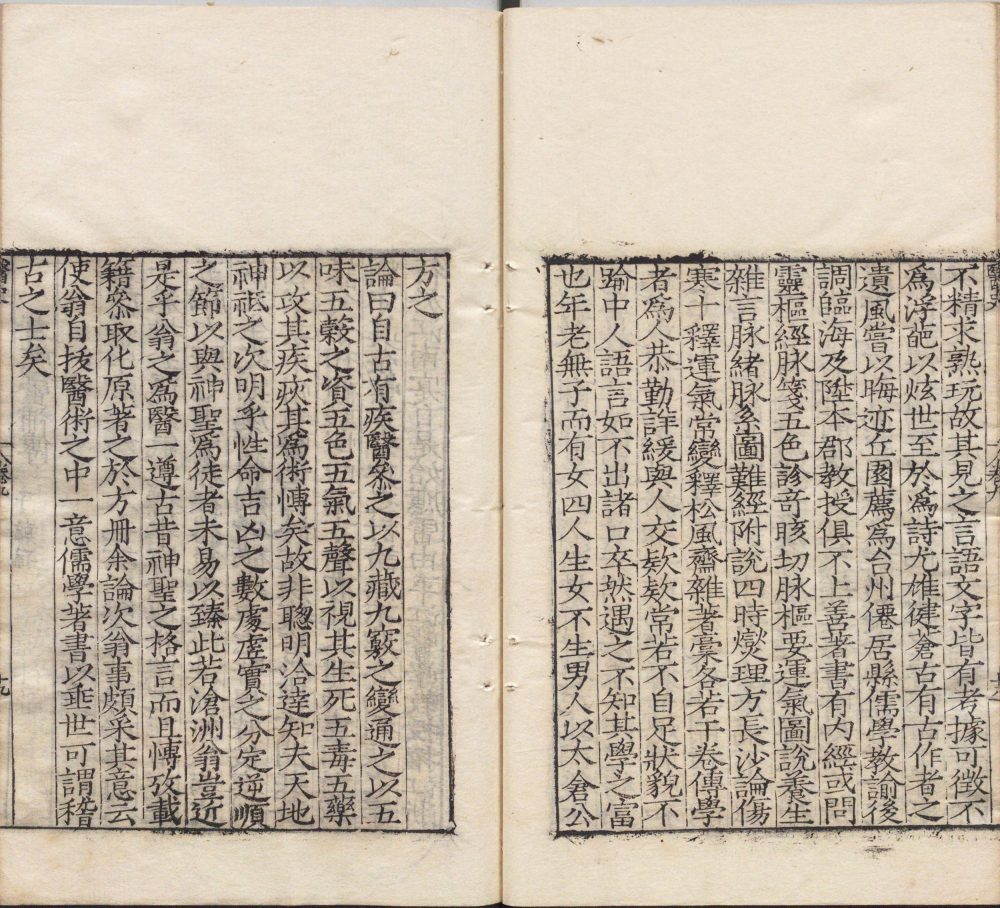 不精求熟玩故其見之言語文字皆有考據可徵不
為浮葩以炫世至於為詩尤雄健蒼古有古作者之
遺風嘗以晦迹丘園薦為台州僊居縣儒學教諭後
調臨海及陞本郡教授俱不上善著書有内經或問
靈樞經脉箋五色診奇賅切脉樞要運氣圖說養生
雜言脉緒脉系圖難經附說四時燮理方長沙論傷
寒十釋運氣常變釋松風齋雜著稾各若干卷傳學
者為人恭勤詳緩與人交欵欵常若不自足狀貌不
踰中人語言如不出諸口卒然遇之不知其學之富
也年老無子而有女四人生女不生男人以太倉公
方之
論曰自古有疾醫叅之以九藏九竅之變通之以五
味五糓之資五色五氣五聲以視其生死五毒五藥
以攻其疾疢其為術慱矣故非聦明洽達知夫天地
神祇之次明乎性命吉凶之數處虛實之分定逆順
之節以與神聖為徒者未易以臻此若滄洲翁豈近
是乎翁之為醫一遵古昔神聖之格言而且慱攷載
籍叅取化原著之於方冊余論次翁事頗采其意云
使翁自拔醫術之中一意儒學著書以埀世可謂稽
古之士矣